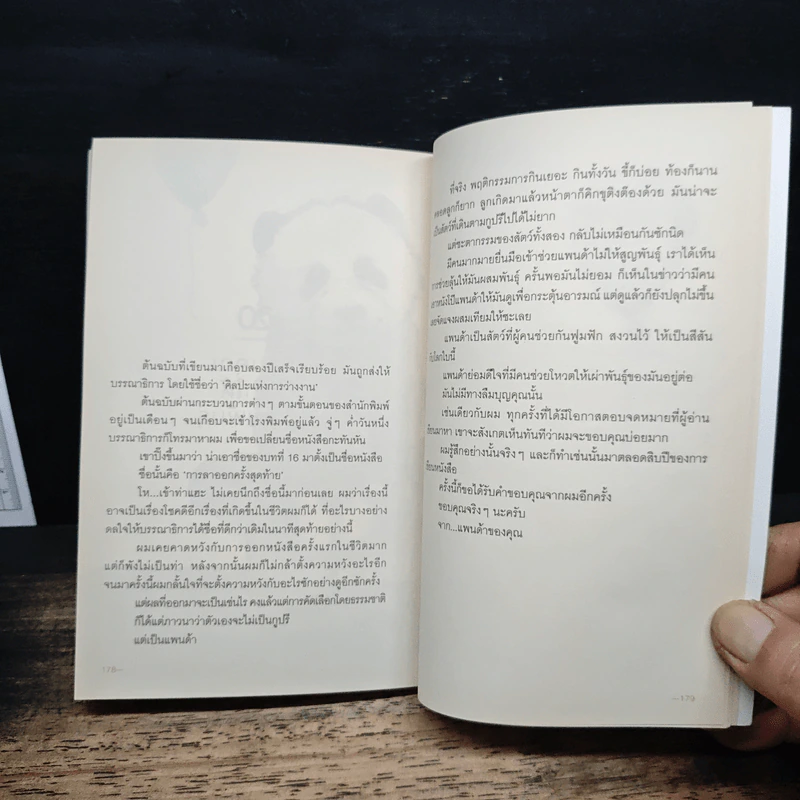 ต้นฉบับที่เขียนมาเกือบสองปีเสร็จเรียบร้อย มันถูกส่งให้
บรรณาธิการ โดยใช้ชื่อว่า 'ศิลปะแห่งการว่างงาน'
ต้นฉบับผ่านกระบวนการต่างๆ ตามขั้นตอนของสำนักพิมพ์
อยู่เป็นเดือนๆ จนเกือบจะเข้าโรงพิมพ์อยู่แล้ว จู่ๆ ค่ำวันหนึ่ง
บรรณาธิการก็โทรมาหาผม เพื่อขอเปลี่ยนชื่อหนังสือกะทันหัน
เขาปิ๊งขึ้นมาว่า น่าเอาชื่อของบทที่ 16 มาตั้งเป็นชื่อหนังสือ
ชื่อนั้นคือ 'การลาออกครั้งสุดท้าย'
โห...เข้าท่าแฮะ ไม่เคยนึกถึงชื่อนี้มาก่อนเลย ผมว่าเรื่องนี้
อาจเป็นเรื่องโชคดีอีกเรื่องที่เกิดขึ้นในชีวิตผมก็ได้ ที่อะไรบางอย่าง
ดลใจให้บรรณาธิการได้ชื่อที่ดีกว่าเดิมในนาทีสุดท้ายอย่างนี้
ผมเคยคาดหวังกับการออกหนังสือครั้งแรกในชีวิตมาก
แต่ก็พังไม่เป็นท่า หลังจากนั้นผมก็ไม่กล้าตั้งความหวังอะไรอีก
จนมาครั้งนี้ผมกลั้นใจที่จะตั้งความหวังกับอะไรซักอย่างดูอีกซักครั้ง
แต่ผลที่ออกมาจะเป็นเช่นไร คงแล้วแต่การคัดเลือกโดยธรรมชาติ
ก็ได้แต่ภาวนาว่าตัวเองจะไม่เป็นกูปรี
แต่เป็นแพนด้า
178—
ที่จริง พฤติกรรมการกินเยอะ กินทั้งวัน ขี้ก็บ่อย ท้องก็นาน
คลอดลูกก็ยาก ลูกเกิดมาแล้วหน้าตาก็คิกขุติงต๊องด้วย มันน่าจะ
เป็นสัตว์ที่เดินตามกูปรีไปได้ไม่ยาก
แต่ชะตากรรมของสัตว์ทั้งสอง กลับไม่เหมือนกันซักนิด
มีคนมากมายยื่นมือเข้าช่วยแพนด้าไม่ให้สูญพันธุ์ เราได้เห็น
การช่วยลุ้นให้มันผสมพันธุ์ ครั้นพอมันไม่ยอม ก็เห็นในข่าวว่ามีคน
เอาหนังโป๊แพนด้าให้มันดูเพื่อกระตุ้นอารมณ์ แต่ดูแล้วก็ยังปลุกไม่ขึ้น
เลยจัดแจงผสมเทียมให้ซะเลย
แพนด้าเป็นสัตว์ที่ผู้คนช่วยกันฟูมฟัก สงวนไว้ ให้เป็นสีสัน
กับโลกใบนี้
แพนด้าย่อมดีใจที่มีคนช่วยโหวตให้เผ่าพันธุ์ของมันอยู่ต่อ
มันไม่มีทางลืมบุญคุณนั้น
เช่นเดียวกับผม ทุกครั้งที่ได้มีโอกาสตอบจดหมายที่ผู้อ่าน
เขียนมาหา เขาจะสังเกตเห็นทันทีว่าผมจะขอบคุณบ่อยมาก
ผมรู้สึกอย่างนั้นจริงๆ และก็ทำเช่นนั้นมาตลอดสิบปีของการ
เขียนหนังสือ
ครั้งนี้ก็ขอได้รับคำขอบคุณจากผมอีกครั้ง
ขอบคุณจริงๆ นะครับ
จาก...แพนด้าของคุณ
—179